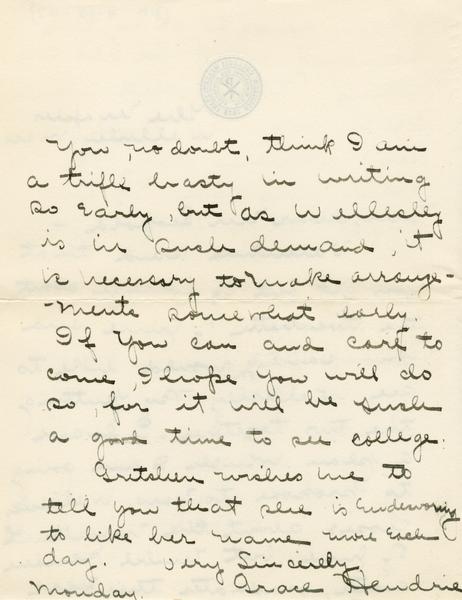 You, no doubt, think I am
a trifle hasty in writing
so early, but as Wellesley
is in such demand, it
is necessary to make arrange-
-ments somewhat early.
If you can and care to
come, I hope you will do
so, for it will be such
a good time to see college.
Gretchen wishes me to
tell you that she is Endeavoring
to like her name more Each
day. Very Sincerely
Monday. Grace Hendrie